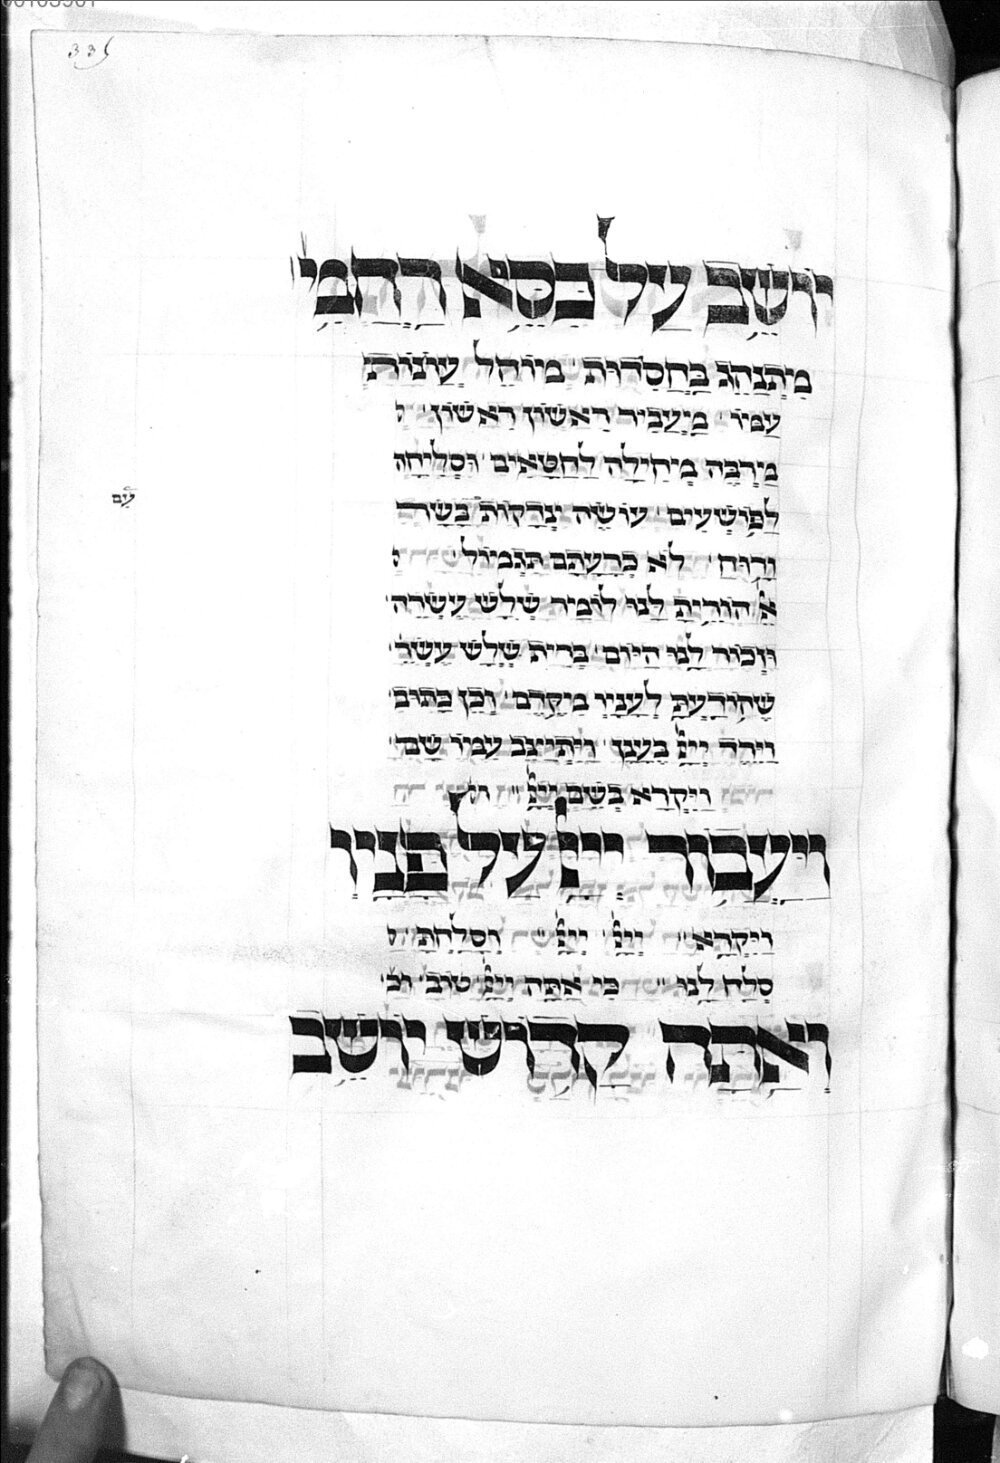 335
יוֹשֵׁב עַל כִּסֵּא רַחֲמִי
מִתְנַהֵג בַּחֲסִדוּת מוֹחֵל עֲוֹנוֹת
עַמּוֹ מַעֲבִיר רִאשׁוֹן רִאשׁוֹן
מַרְבֶּה מְחִילָה לַחַטָּאִים וּסְלִיחָה
לַפּוֹשְׁעִים עוֹשֶׂה צְדָקוֹת בָּשָׂר
עִם
וָרוּחַ לֹא כְרָעָתָם תִּגְמוֹל
אֵל הוֹרֵיתָ לָנוּ לוֹמַר שְׁלֹשׁ עֶשְׂרֵה
וּזְכוֹר לָנוּ הַיּוֹם בְּרִית שְׁלֹשׁ עֶשְׂרֵ
שֶׁהוֹדַעְתָּ לֶעָנָיו מִקֶּדֶם וְכֵן כָּתוּב
וַיֵּרֶד יְיָ בֶּעָנָן וַיִּתְיַצֵּב עִמּוֹ שָׁם
וַיִּקְרָא בְשֵׁם יְיָ
וַיַּעֲבוֹר יְיָ עַל פָּנָיו
וַיִּקְרָא יְיָ יְיָ וְסָלַחְתָּ
סְלַח לָנוּ כִּי אַתָּה יְיָ טוֹב וכ
וְאַתָּה קָדוֹשׁ יוֹשֵׁב